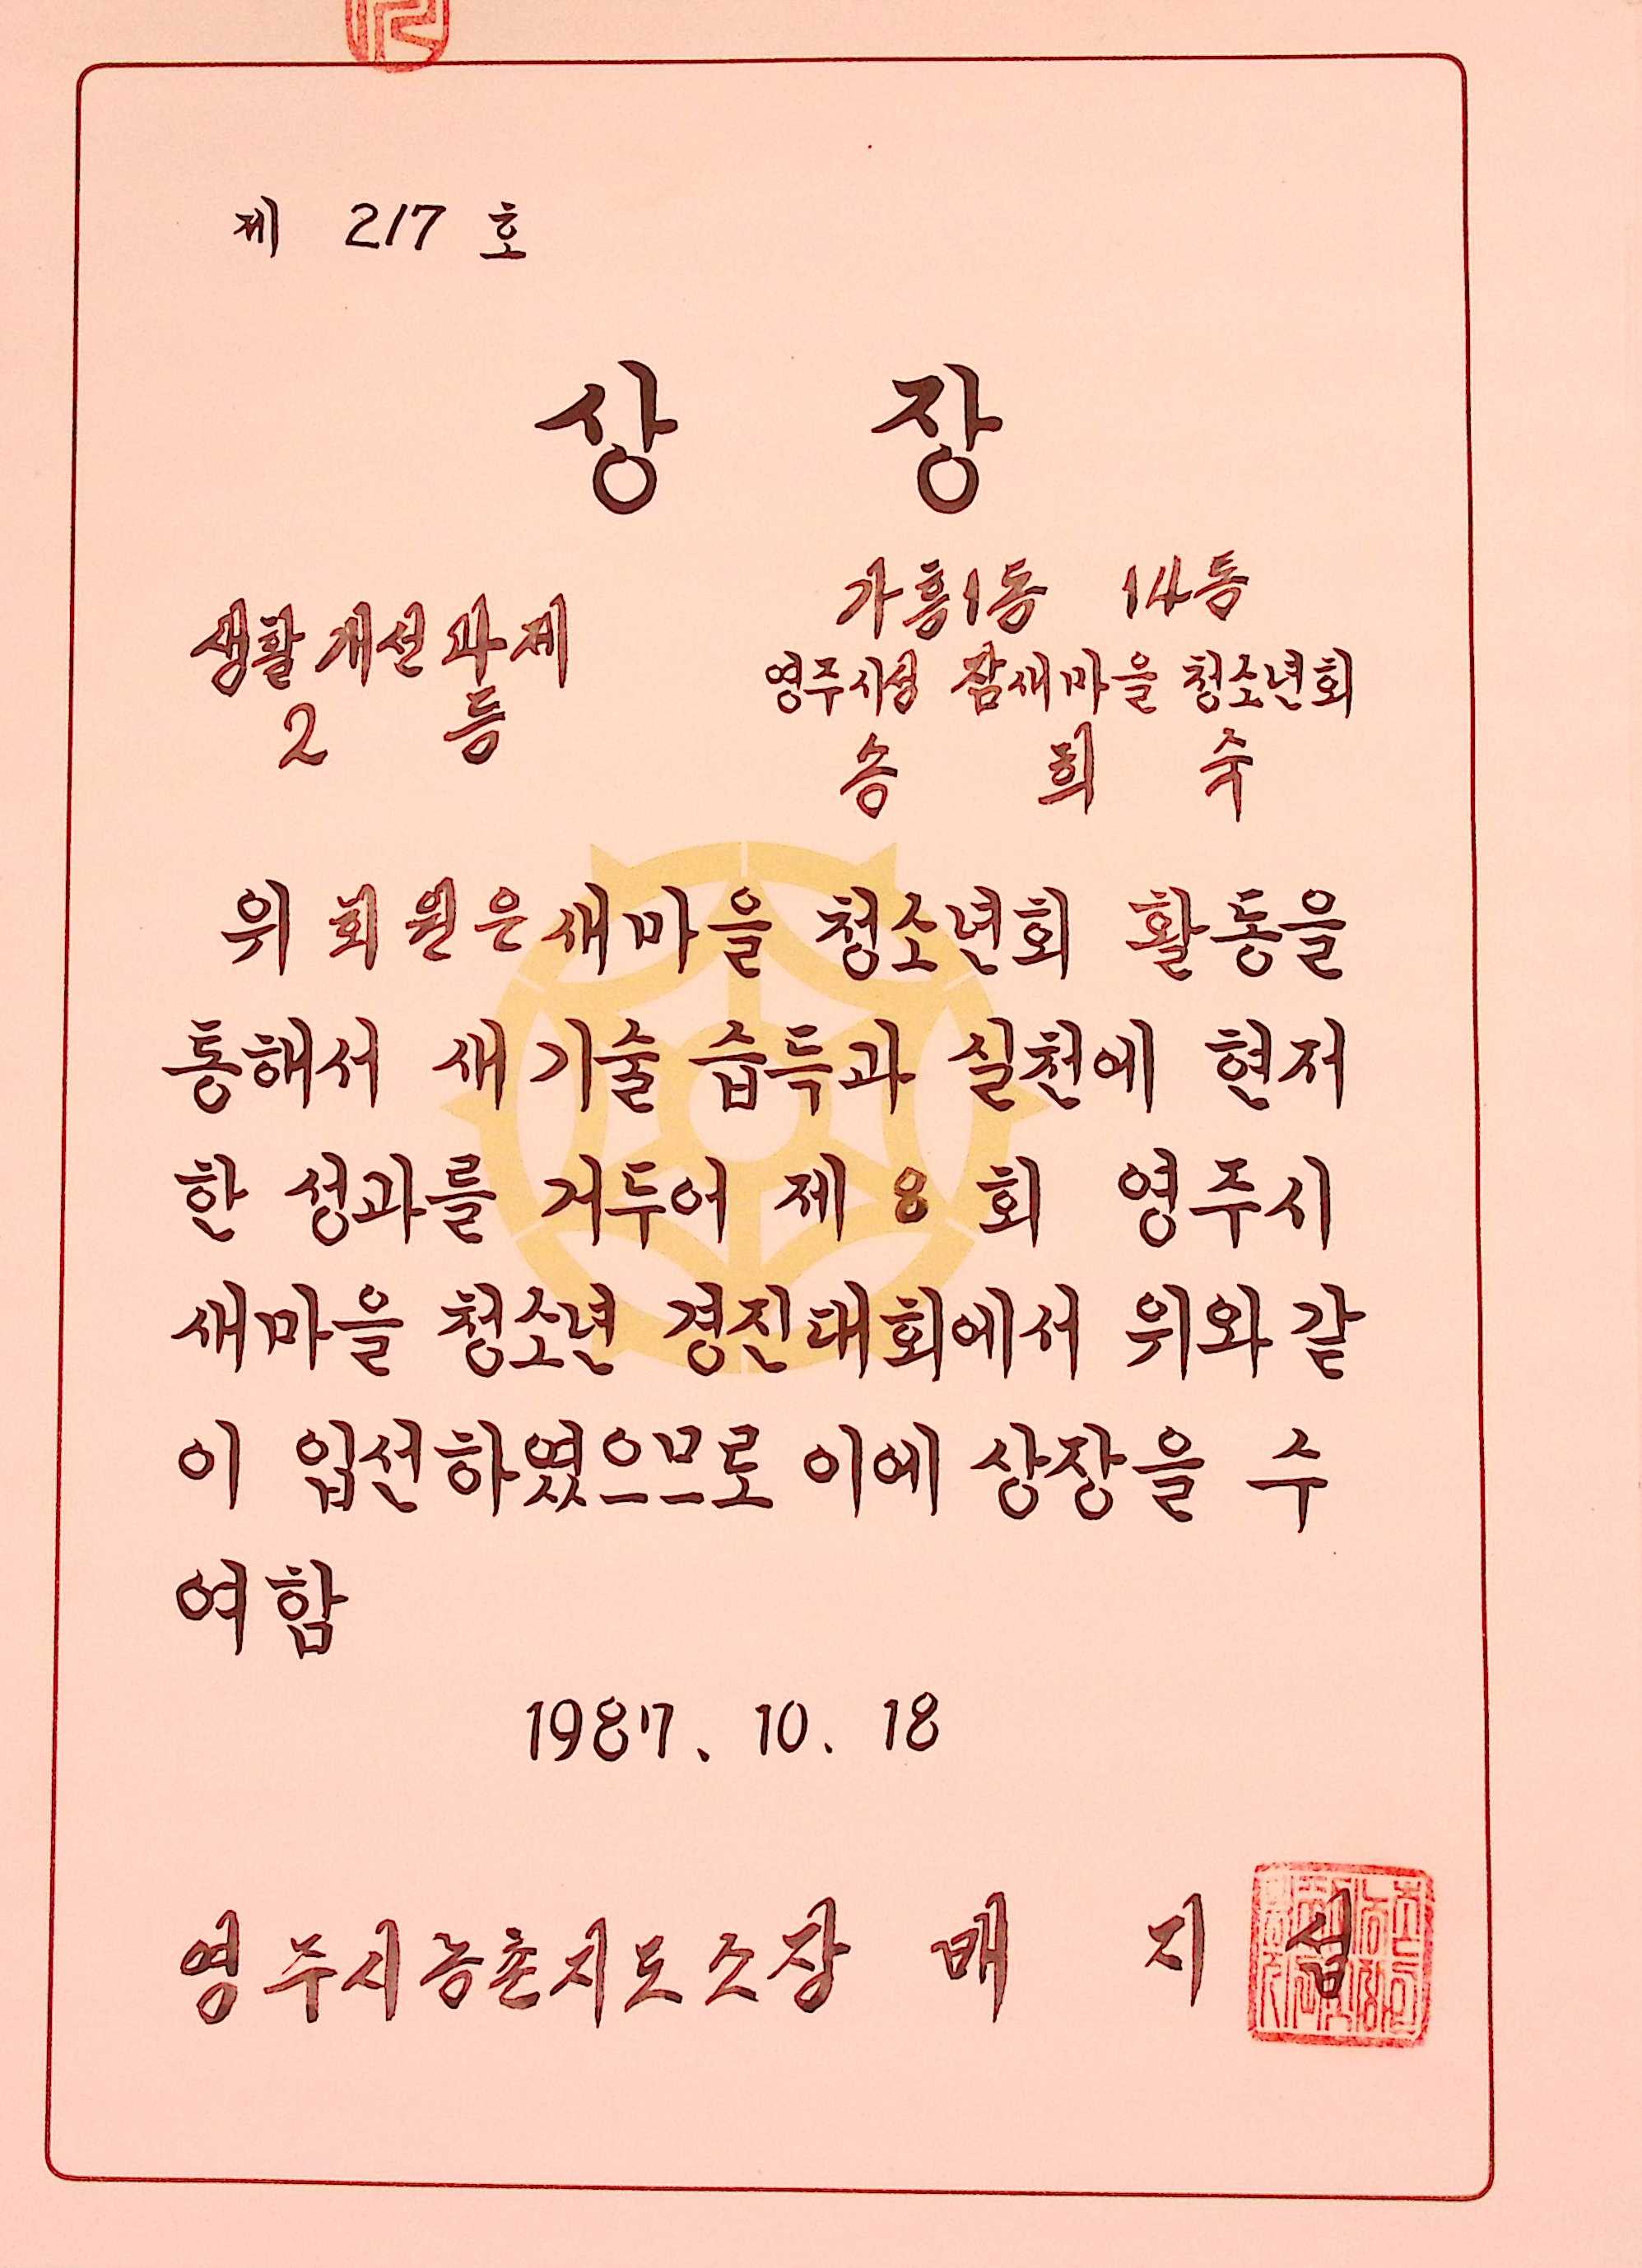 제 217 호
상 장
가흥1동 14통
생활개선과제
영주시성 잠새마을 청소년회
2 등
송 희 숙
위 회원은 새마을 청소년회 활동을
통해서 새기술 습득과 실천에 현저
한 성과를 거두어 제 8 회 영주시
새마을 청소년 경진대회에서 위와 같
이 입선하였으므로 이에 상장을 수
여함
1987. 10. 18
영주시농촌지도소장 배 지 섭